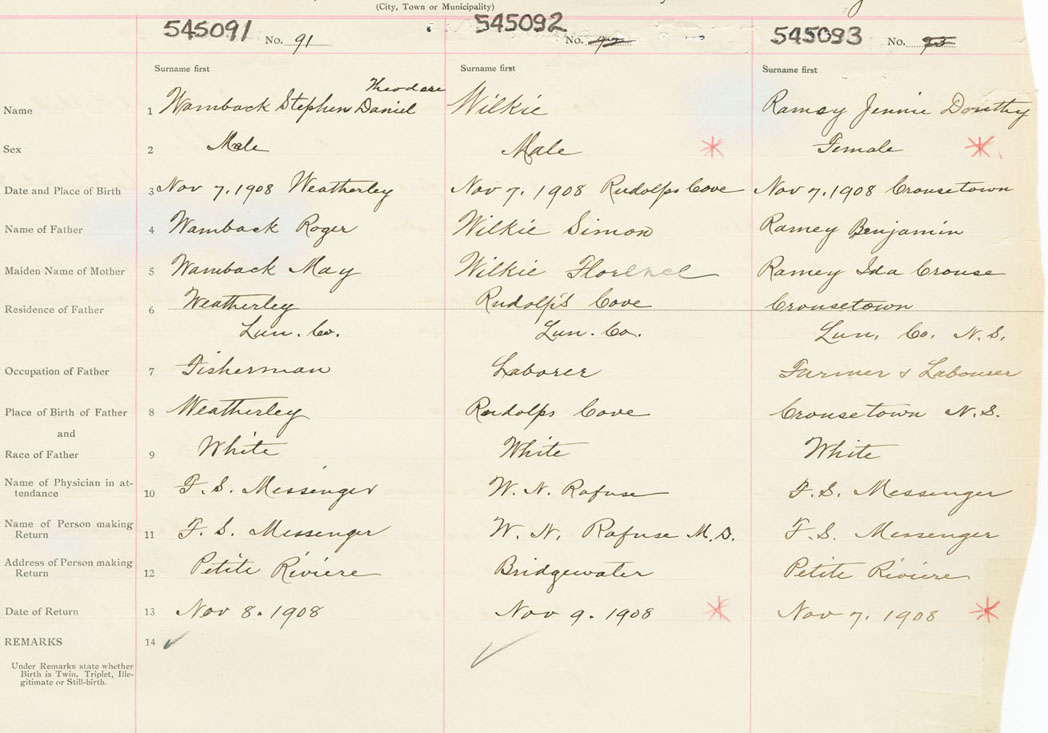 (City, Town or Municipality)
545091 No. 91 545092 No. 92 545093 No. 93
Surname first Surname first Surname first
Theodore
Name 1 Wamback Stephen Daniel Wilkie Ramey Jennie Dorothy
Sex 2 Male Male Female
Date and Place of Birth 3 Nov 7, 1908 Weatherley Nov 7, 1908 Rudolps Cove Nov 7, 1908 Crousetown
Name of Father 4 Wamback Roger Wilkie Simon Ramey Benjamin
Maiden Name of Mother 5 Wamback May Wilkie Ramey Ida Crouse
Residence of Father 6 Weatherley Rudolp's Cove Crousetown
Lun. Co. Lun. Co. Lun. Co. N.S.
Occupation of Father 7 Fisherman Laborer Farmer & Labourer
Place of Birth of Father 8 Weatherley Rudolps Cove Crousetown N.S.
and
Race of Father 9 White White White
Name of Physician in at-
tendance 10 F. S. Messenger W. N. Rafuse F. S. Messenger
Name of Person making
Return 11 F. S. Messenger W. N. Rafuse M.D. F. S. Messenger
Address of Person making
Return 12 Petite Riviere Bridgewater Petite Riviere
Date of Return 13 Nov 8. 1908 Nov 9. 1908 Nov 7. 1908
REMARKS 14
Under Remarks state whether
Birth is Twin, Triplet, Ille-
gitimate or Still-birth.